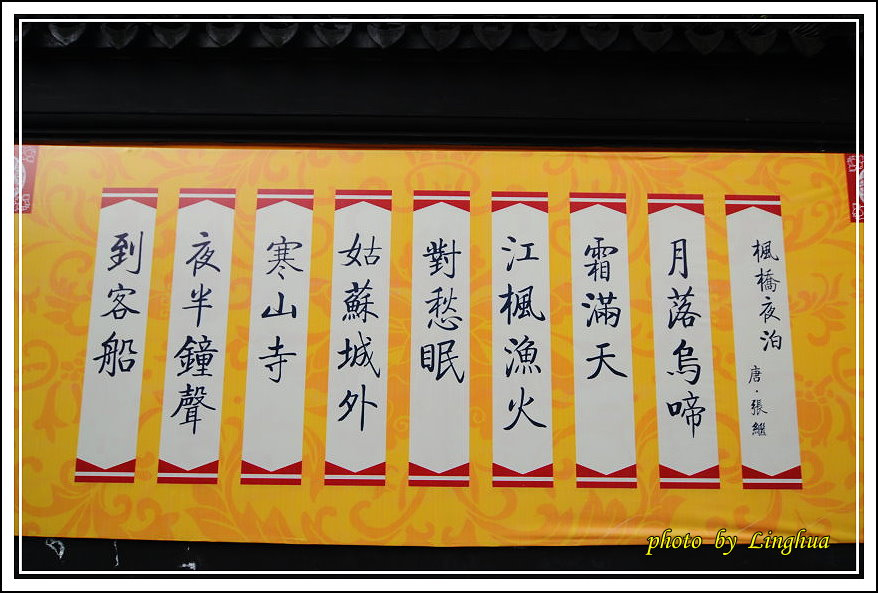 楓橋夜泊
唐·張繼
月落烏啼
霜滿天
江楓漁火
對愁眠
姑蘇城外
寒山寺
夜半鐘聲
到客船
photo by Linghua